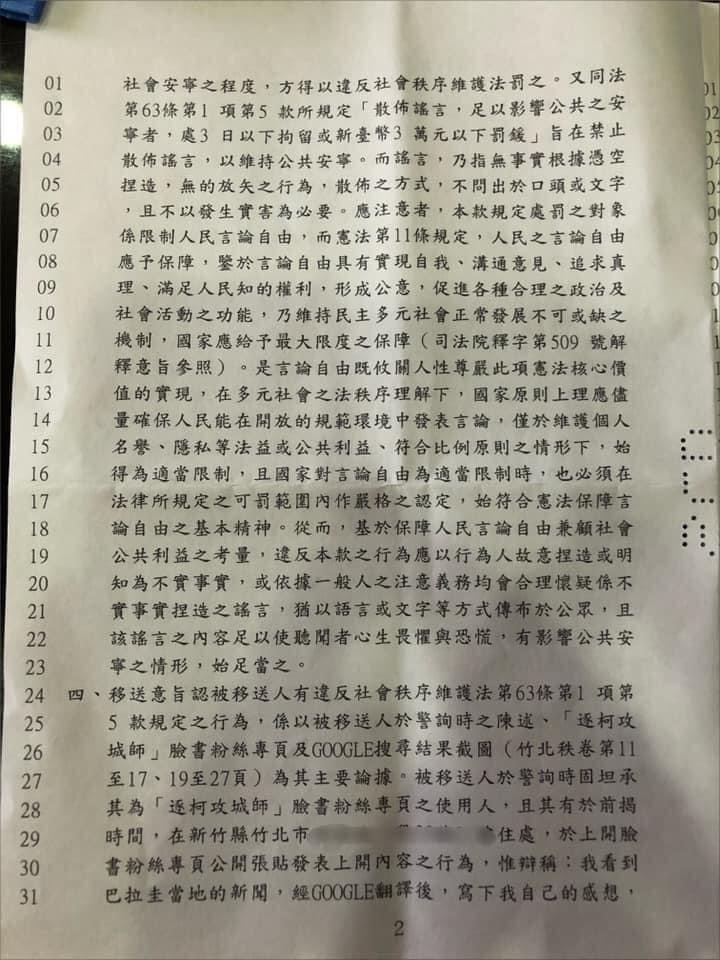 01 社會安寧之程度，方得以違反社會秩序維護法罰之。又同法
02 第63條第1 項第5 款所規定「散佈謠言，足以影響公共之安
03 寧者，處3 日以下拘留或新臺幣3 萬元以下罰鍰」旨在禁止
04 散佈謠言，以維持公共安寧。而謠言，乃指無事實根據憑空
05 捏造，無的放矢之行為，散佈之方式，不問出於口頭或文字
06 ，且不以發生實害為必要。應注意者，本款規定處罰之對象
07 係限制人民言論自由，而憲法第11條規定，人民之言論自由
08 應予保障，鑒於言論自由具有實現自我、溝通意見、追求真
09 理、滿足人民知的權利，形成公意，促進各種合理之政治及
10 社會活動之功能，乃維持民主多元社會正常發展不可或缺之
11 機制，國家應給予最大限度之保障（司法院釋字第509 號解
12 釋意旨參照）。是言論自由既攸關人性尊嚴此項憲法核心價
13 值的實現，在多元社會之法秩序理解下，國家原則上理應儘
14 量確保人民能在開放的規範環境中發表言論，僅於維護個人
15 名譽、隱私等法益或公共利益、符合比例原則之情形下，始
16 得為適當限制，且國家對言論自由為適當限制時，也必須在
17 法律所規定之可罰範圍內作嚴格之認定，始符合憲法保障言
18 論自由之基本精神。從而，基於保障人民言論自由兼顧社會
19 公共利益之考量，違反本款之行為應以行為人故意捏造或明
20 知為不實事實，或依據一般人之注意義務均會合理懷疑係不
21 實事實捏造之謠言，猶以語言或文字等方式傳布於公眾，且
22 該謠言之內容足以使聽聞者心生畏懼與恐慌，有影響公共安
23 寧之情形，始足當之。
24 四、移送意旨認被移送人有違反社會秩序維護法第63條第1 項第
25 5 款規定之行為，係以被移送人於警詢時之陳述、「逐柯攻
26 城師」臉書粉絲專頁及GOOGLE搜尋結果截圖（竹北秩卷第11
27 至17、19至27頁）為其主要論據。被移送人於警詢時固坦承
28 其為「逐柯攻城師」臉書粉絲專頁之使用人，且其有於前揭
29 時間，在新竹縣竹北市 住處，於上開臉
30 書粉絲專頁公開張貼發表上開內容之行為，惟辯稱：我看到
31 巴拉圭當地的新聞，經GOOGLE翻譯後，寫下我自己的感想，
2